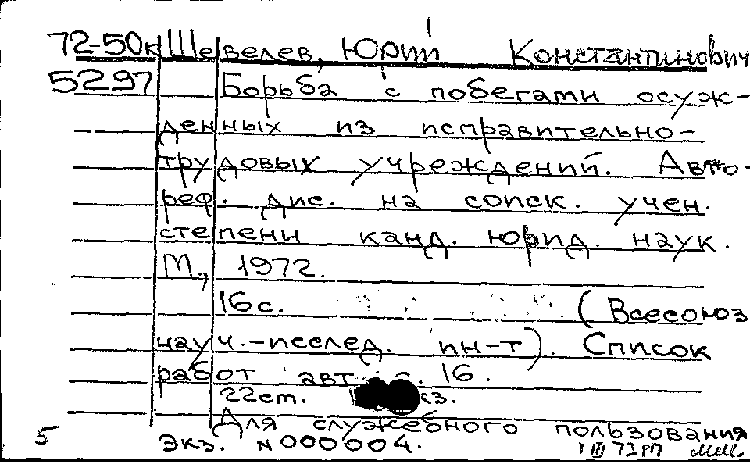 72-50к Шевелев, Юрий Константинович
5297 Борьба с побегами осуж-
денных из исправительно-
трудовых учреждений. Авто-
реф. дис. на соиск. учен.
степени канд. юрид. наук.
М., 1972.
16 с. (Всесоюз
науч.-исслед. ин-т). Список
работ авт с. 16.
22 см.
Для служебного пользования
5 экз. N000004.